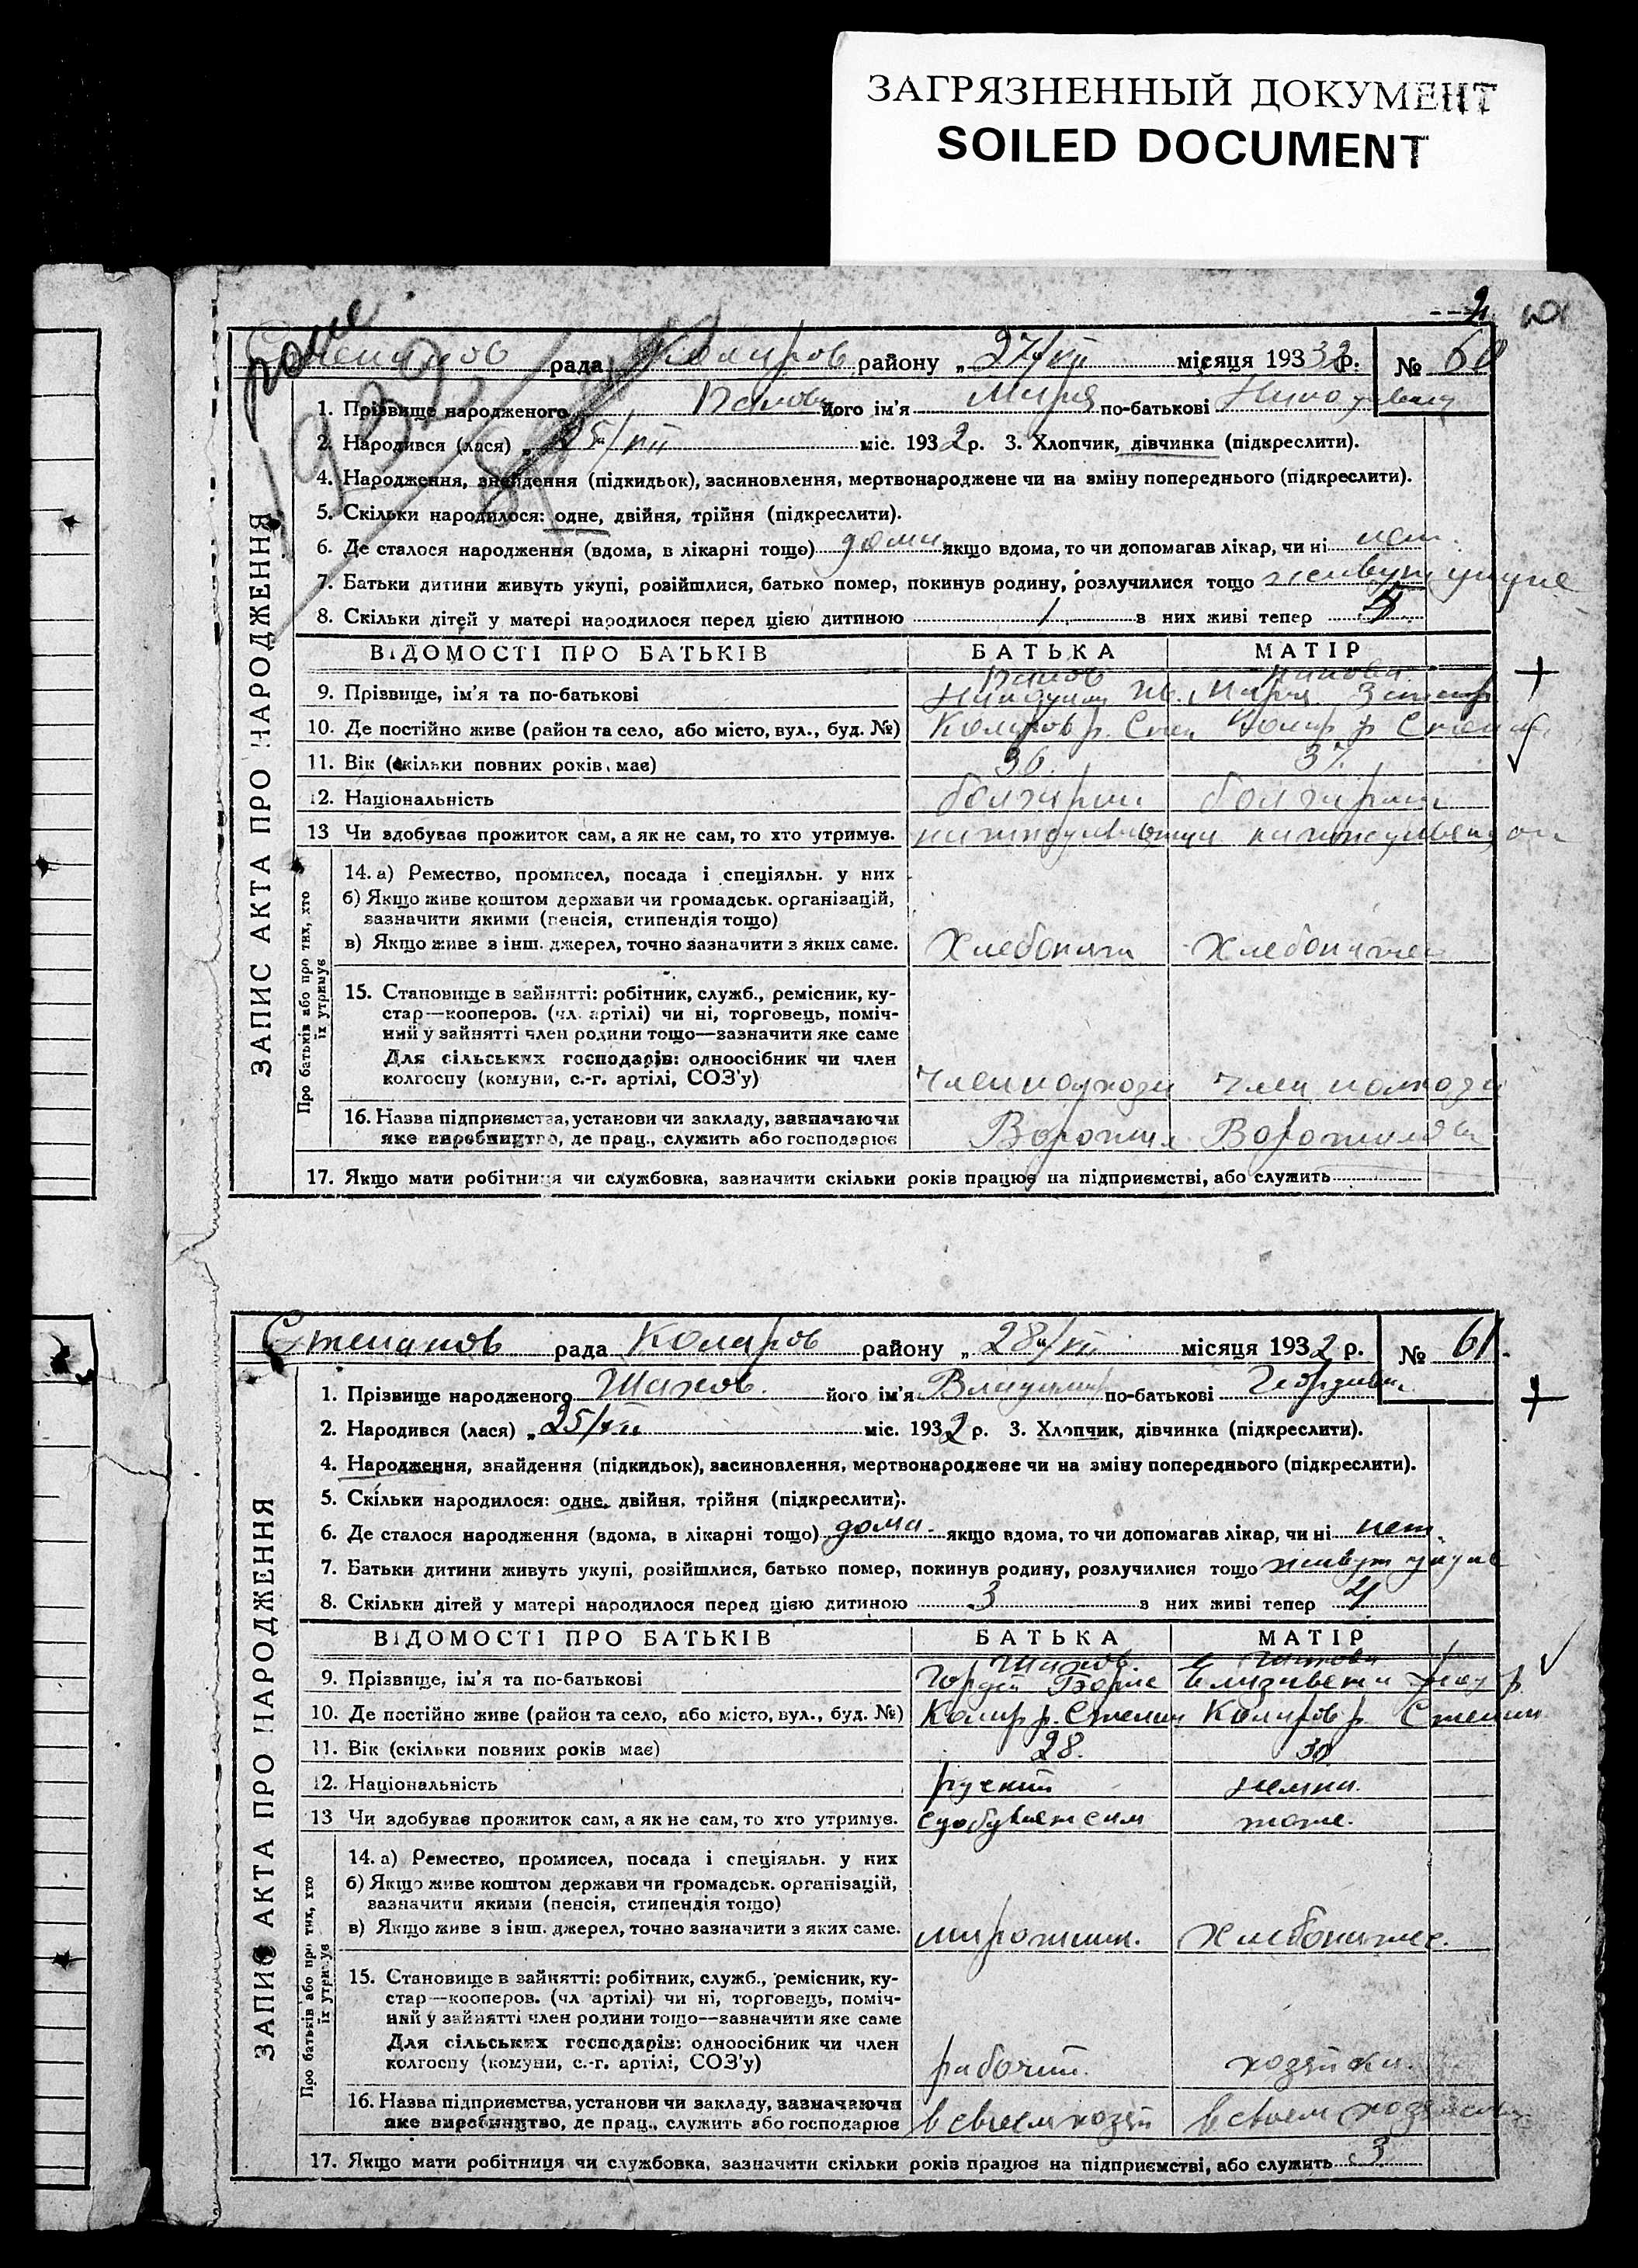 ЗАГРЯЗНЕННЫЙ ДОКУМЕНТ
SOILED DOCUMENT
рада Коларов району „ 27/VII місяця 1932 р. № 60
1. Прізвище народженого його ім'я Мария по-батькові
2. Народився (лася) „ 25/VII міс. 1932 р. 3. Хлопчик, дівчинка (підкреслити).
4. Народження, знайдення (підкидьок), засиновлення, мертвонароджене чи на зміну попереднього (підкреслити).
5. Скільки народилося: одне, двійня, трійня (підкреслити).
6. Де сталося народження (вдома, в лікарні тощо) дома якщо вдома, то чи допомагав лікар, чи ні нет.
7. Батьки дитини живуть укупі, розійшлися, батько помер, покинув родину, розлучилися тощо живут укупе
8. Скільки дітей у матері народилося перед цією дитиною 1 з них живі тепер
ВІДОМОСТІ ПРО БАТЬКІВ БАТЬКА МАТІР
9. Прізвище, ім'я та по-батькові
10. Де постійно живе (район та село, або місто, вул., буд. №) Коларов р. Степ Колар р Степан
11. Вік (скільки повних років має) 36. 37.
12. Національність болгарин болгарка
13 Чи здобуває прожиток сам, а як не сам, то хто утримує.
14. а) Ремество, промисел, посада і спеціяльн. у них
б) Якщо живе коштом держави чи громадськ. організацій,
зазначити якими (пенсія, стипендія тощо)
в) Якщо живе з інш. джерел, точно зазначити з яких саме. Хлебопаш Хлебопаше
15. Становище в зайнятті: робітник, служб., ремісник, ку-
стар—кооперов. (чл. артілі) чи ні, торговець, поміч-
ний у зайнятті член родини тощо—зазначити яке саме
Для сільських господарів: одноосібник чи член
колгоспу (комуни, с.-г. артілі, СОЗ'у) Член колхоза Член колхоза
16. Назва підприємства, установи чи закладу, зазначаючи
яке виробництво, де прац., служить або господарює
17. Якщо мати робітниця чи службовка, зазначити скільки років працює на підприємстві, або служить
ЗАПИС АКТА ПРО НАРОДЖЕННЯ
Про батьків або про тих, хто
їх утримує
Степанов рада Коларов району „ 28/VII місяця 1932 р. № 61.
1. Прізвище народженого Шахов. його ім'я Владимир по-батькові
2. Народився (лася) „ 25/VII міс. 1932 р. 3. Хлопчик, дівчинка (підкреслити).
4. Народження, знайдення (підкидьок), засиновлення, мертвонароджене чи на зміну попереднього (підкреслити).
5. Скільки народилося: одне, двійня, трійня (підкреслити).
6. Де сталося народження (вдома, в лікарні тощо) дома. якщо вдома, то чи допомагав лікар, чи ні нет.
7. Батьки дитини живуть укупі, розійшлися, батько помер, покинув родину, розлучилися тощо живут укупе
8. Скільки дітей у матері народилося перед цією дитиною 3 з них живі тепер 4
ВІДОМОСТІ ПРО БАТЬКІВ БАТЬКА МАТІР
Шахов. Шахова
9. Прізвище, ім'я та по-батькові Гордей Борис Елизавета
10. Де постійно живе (район та село, або місто, вул., буд. №) Колар р. Степан Коларов р. Степан
11. Вік (скільки повних років має) 28. 30
12. Національність руский немка.
13 Чи здобуває прожиток сам, а як не сам, то хто утримує. сдобувает сам тоже.
14. а) Ремество, промисел, посада і спеціяльн. у них
б) Якщо живе коштом держави чи громадськ. організацій,
зазначити якими (пенсія, стипендія тощо)
в) Якщо живе з інш. джерел, точно зазначити з яких саме. Хлебопаше.
15. Становище в зайнятті: робітник, служб., ремісник, ку-
стар—кооперов. (чл артілі) чи ні, торговець, поміч-
ний у зайнятті член родини тощо—зазначити яке саме
Для сільських господарів: одноосібник чи член
колгоспу (комуни, с.-г. артілі, СОЗ'у) рабочий. хозяйка.
16. Назва підприємства, установи чи закладу, зазначаючи
яке виробництво, де прац., служить або господарює в своем хозяй в своем хозяйстве
17. Якщо мати робітниця чи службовка, зазначити скільки років працює на підприємстві, або служить 3
ЗАПИС АКТА ПРО НАРОДЖЕННЯ
Про батьків або про тих, хто
їх утримує